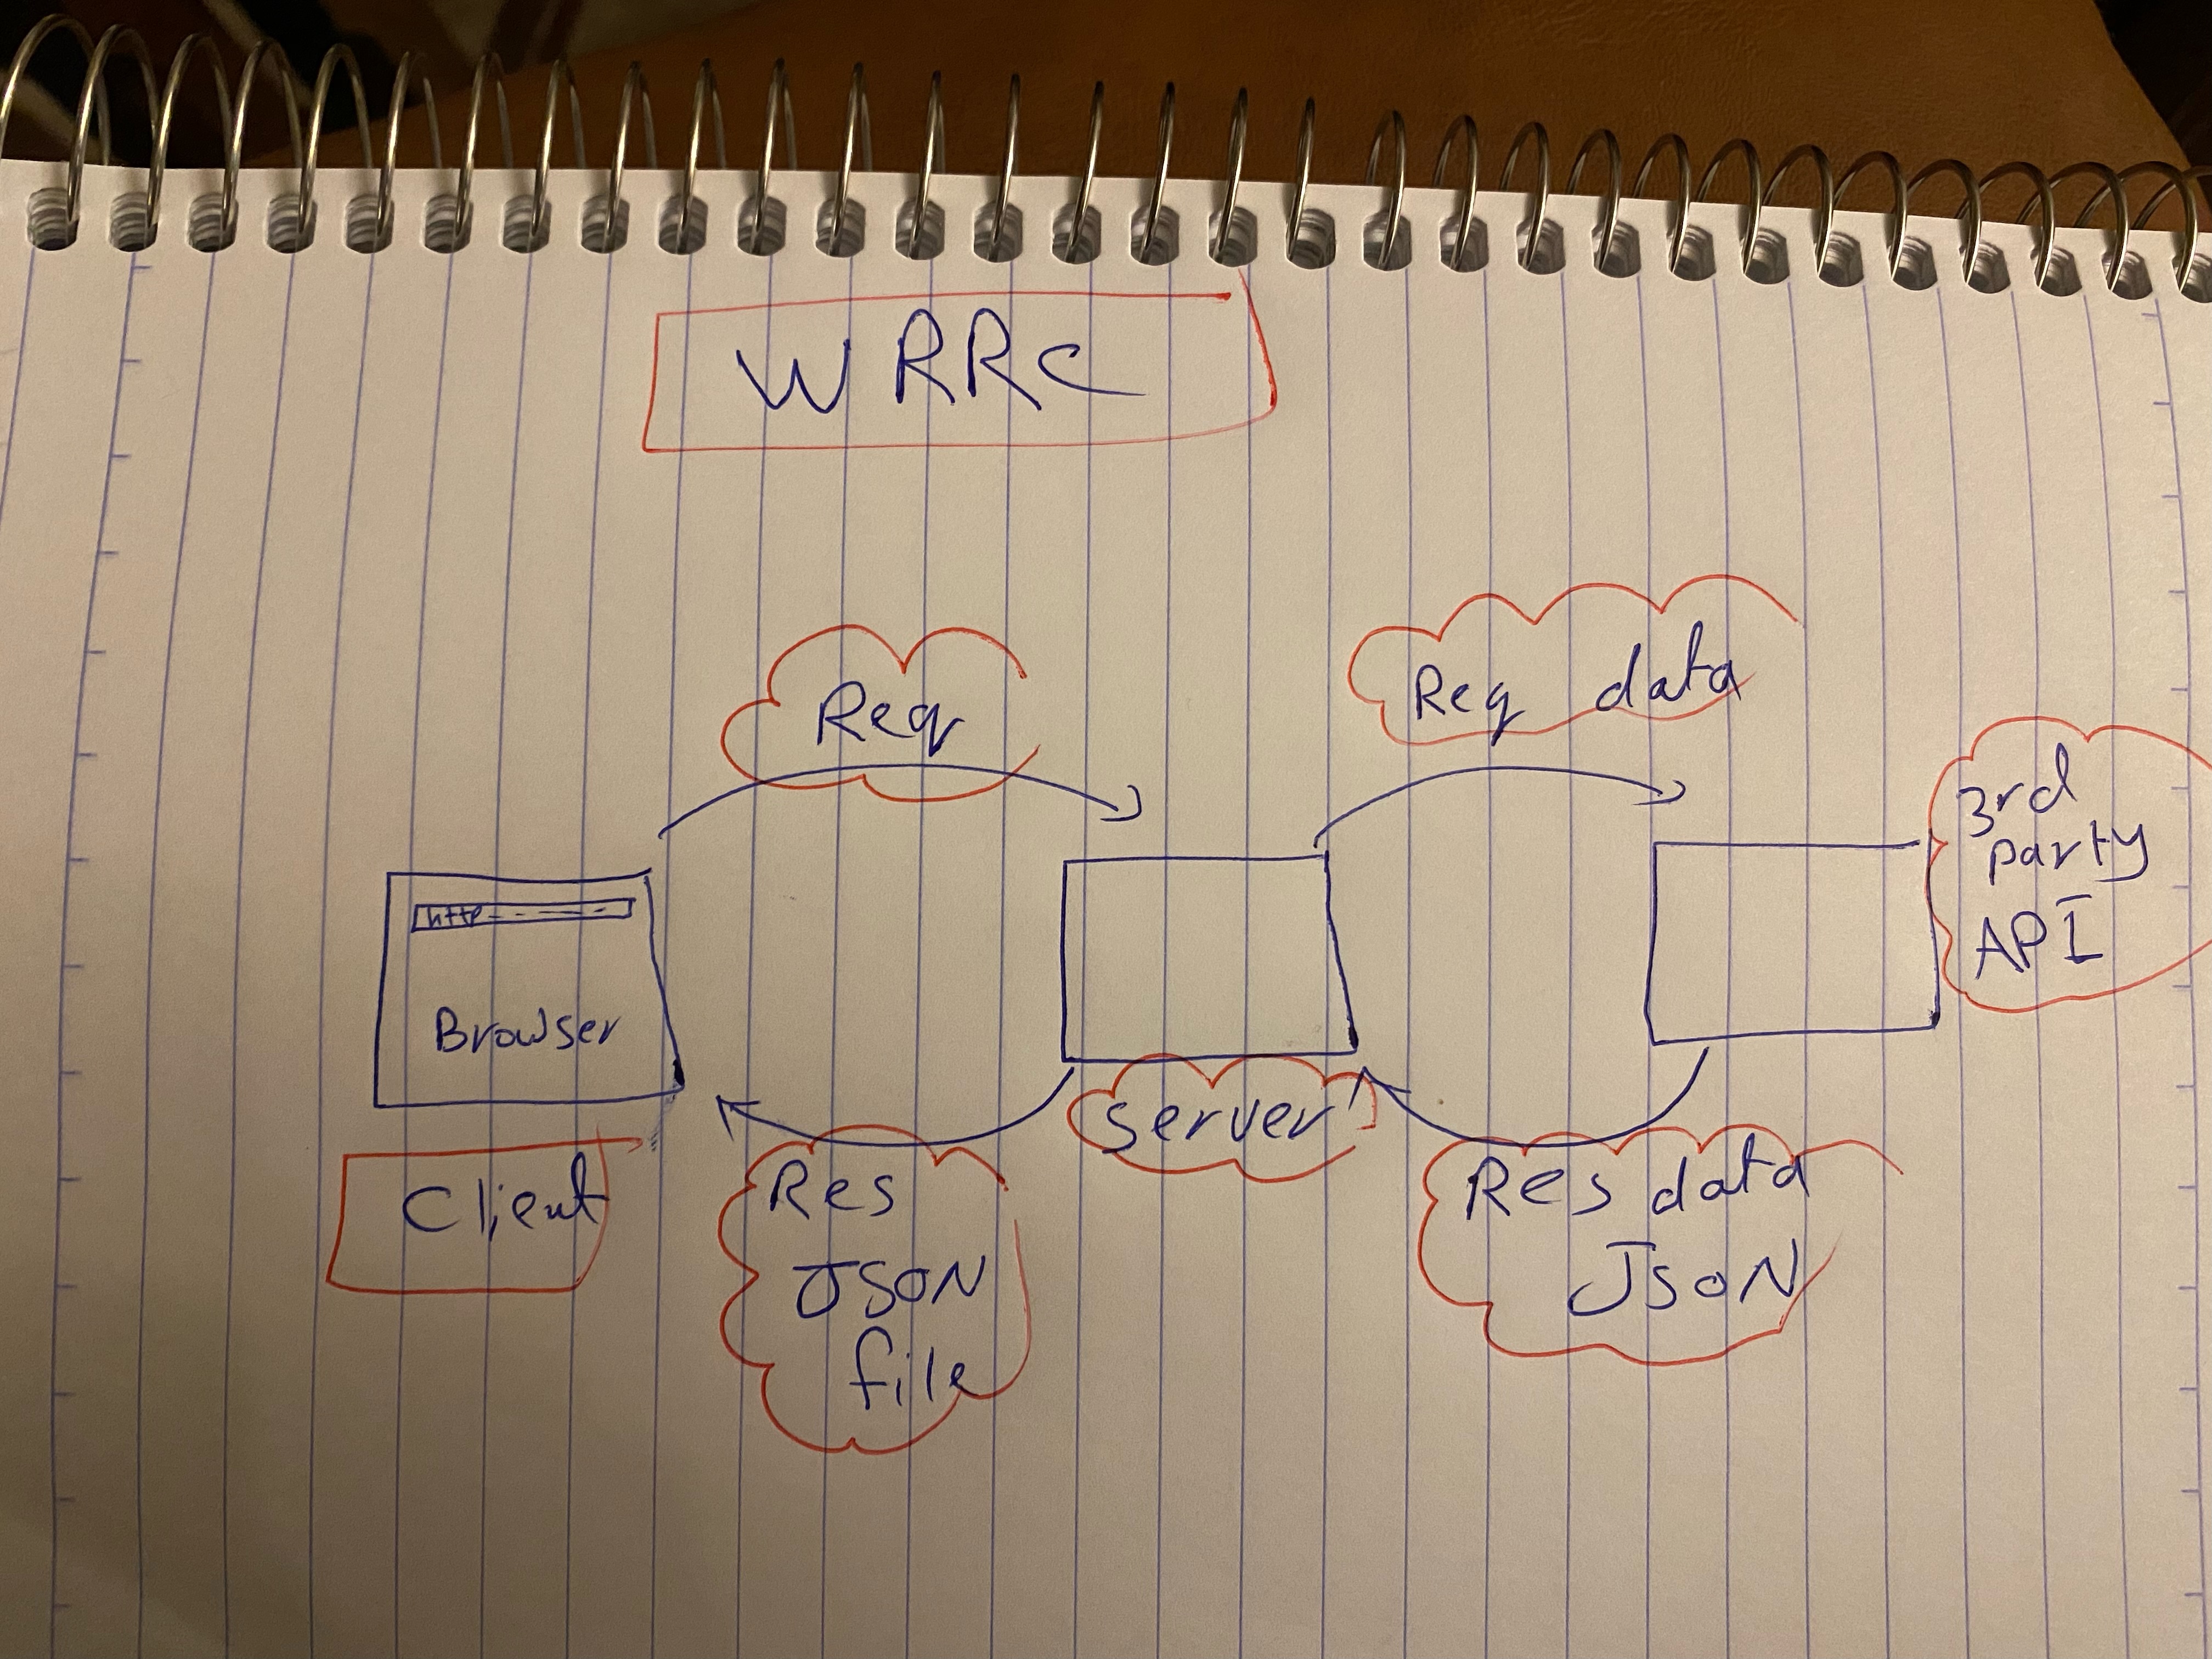 WRRC
Req
Req data
3rd
party
API
http
Browser
Client
server
Res
JSON
file
Res data
JSON